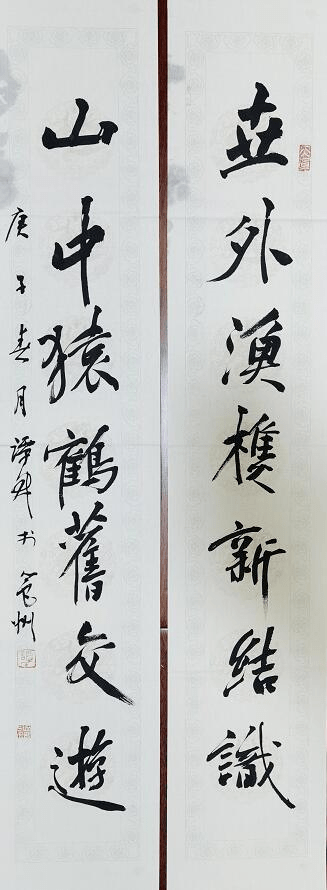 世外漁樵新結識
山中猿鶴舊交遊
庚子春月